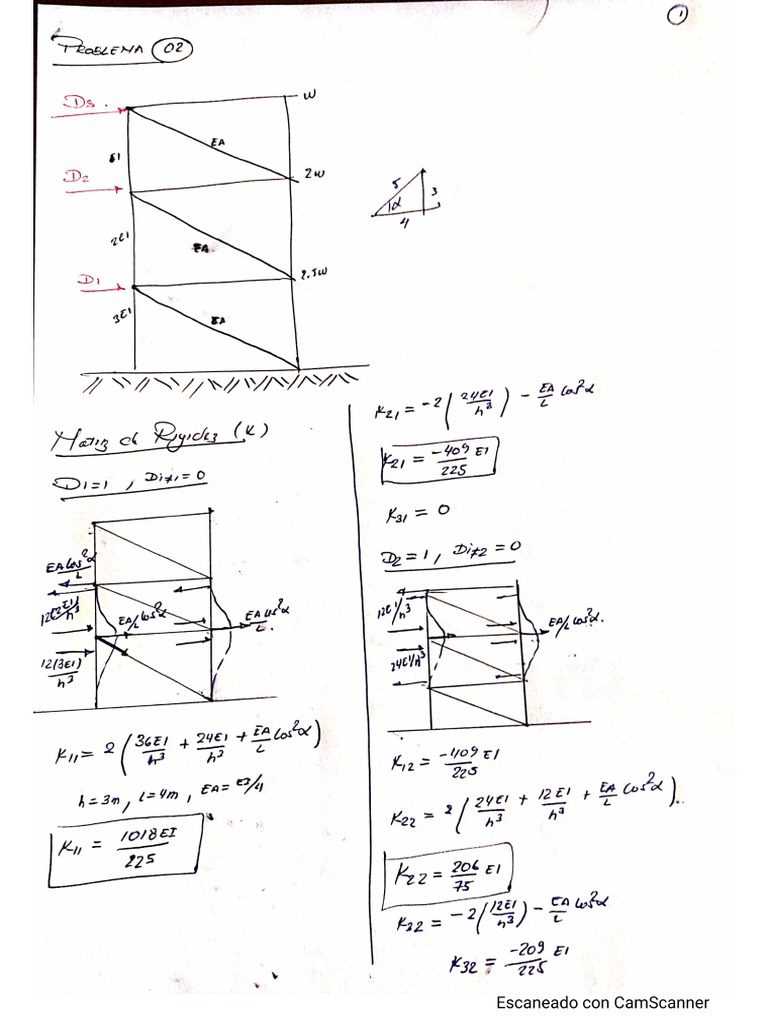 1
PROBLEMA 02
D3
W
EA
EI
D2
2W
5
3
α
4
2EI
EA
D1
2.5W
3EI
EA
Matriz de Rigidez (K)
D1=1 , Di≠1=0
EA/L cos²α
12(2EI)/h³
EA/L cos²α
EA/L cos²α
12(3EI)/h³
K11 = 2 (36EI/h³ + 24EI/h³ + EA/L cos²α)
h=3m , L=4m , EA=EI/4
K11 = 1018EI/225
K21 = -2 (24EI/h³) - EA/L cos²α
K21 = -409/225 EI
K31 = 0
D2=1 , Di≠2=0
12EI/h³
EA/L cos²α.
24EI/h³
K12 = -409/225 EI
K22 = 2 (24EI/h³ + 12EI/h³ + EA/L cos²α).
K22 = 206/75 EI
K32 = -2 (12EI/h³) - EA/L cos²α
K32 = -209/225 EI
Escaneado con CamScanner